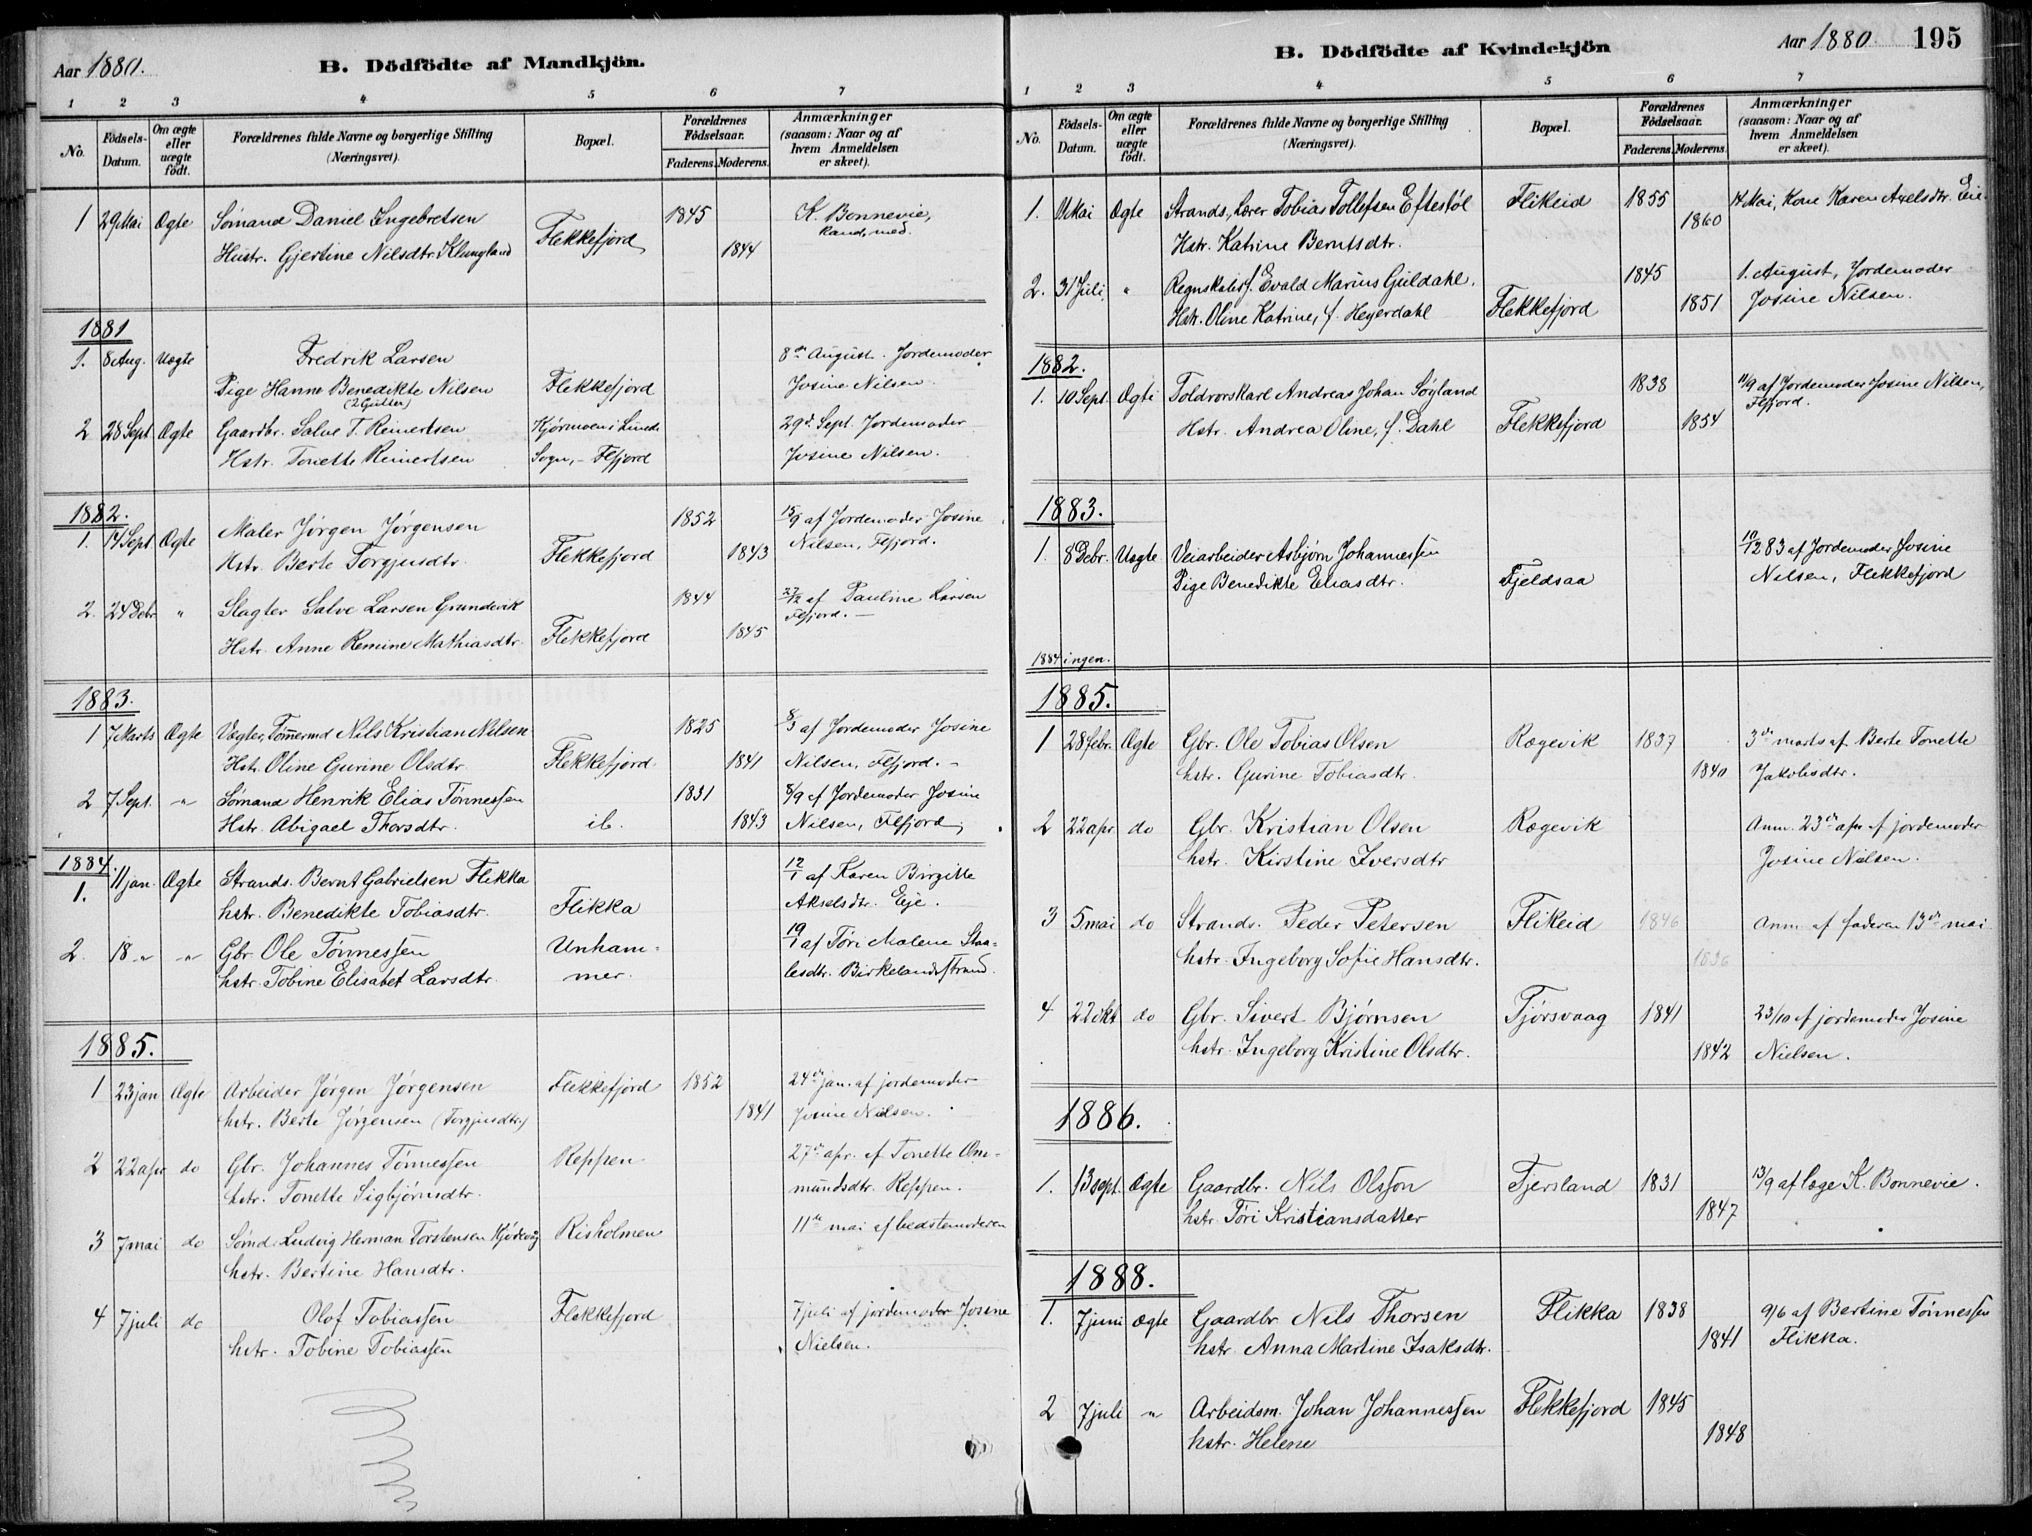 Aar 1880.
B. Dödfödte af Mandkjön.
1 2 3 4 5 6 7
No.
Födsels-Datum.
Om ægte eller uægte födt.
Forældrenes fulde Navne og borgerlige Stilling (Næringsvei).
Bopæl.
Forældrenes Födselsaar.
Faderens. Moderens.
Anmærkninger (saasom: Naar og af hvem Anmeldelsen er skeet).
1 29 Mai Ægte Sømand Daniel Engebretsen 1845 K. Bonnevie,
Hustr. Gjertine Nilsdtr. Klungland Flekkefjord 1844 kand. med.
1881
1. 8 Aug. Uægte Fredrik Larsen 8de August. Jordemoder
Pige Hanne Benedikte Nilsen Flekkefjord Josine Nilsen.
(2 Gutter)
2 28 Sept. Ægte Gaardbr. Salve T. Reinertsen Kjørmoen i Lunds 29d. Sept. Jordemoder
Hstr. Tonette Reinertsen Sogn, - Flfjord Josine Nilsen.
1882.
1. 14 Sept. Ægte Maler Jørgen Jørgensen 1852 15/9 af Jordemoder Josine
Hstr. Berte Torgjusdtr. Flekkefjord 1843 Nilsen, Flfjord.
2. 24 Debr. " Slagter Salve Larsen Grundevik 1844 27/12 af Pauline Larsen
Hstr. Anne Remine Mathiasdtr. Flekkefjord 1845 Flfjord. —
1883.
1 7 Marts Ægte Vægter, Tømmermd Nils Kristian Nilsen 1825 8/3 af Jordemoder Josine
Hstr. Oline Gurine Olsdtr. Flekkefjord. 1841 Nilsen, Flfjord. -
2 7 Sept. " Sømand Henrik Elias Tønnessen 1831 8/9 af Jordemoder Josine
Hstr. Abigael Thorsdtr. ib. 1843 Nilsen, Flfjord.
1884.
1. 11 jan. Ægte Strands. Bernt Gabrielsen Flikka 12/1 af Karen Birgitte
hstr. Benedikte Tobiasdtr. Flikka Akselsdtr. Eje.
2. 18 " " Gbr. Ole Tønnessen Unham- 19/1 af Tøri Malene Staa-
hstr. Tobine Elisabet Larsdtr. mer. lesdtr. Birkelandsstrand.
1885.
1 23 jan Ægte Arbeider Jørgen Jørgensen Flekkefjord 1852 24de jan. af jordemoder
hstr. Berte Jørgensen (Torgjusdtr.) 1841 Josine Nielsen.
2 22 apr do Gbr. Johannes Tønnessen Reppen 27de apr. af Tonette Om-
hstr. Tonette Sigbjørnsdtr. mundsdtr. Reppen.
3 7 mai do Sømd. Ludvig Herman Torstensen Risholmen 11te mai af bedstemoderen
hstr. Bertine Hansdtr.
4 7 juli do Olof Tobiassen Flekkefjord 7 juli af jordemoder Josine
hstr. Tobine Tobiassen Nielsen.
B. Dödfödte af Kvindekjön
Aar 1880. 195
1 2 3 4 5 6 7
No.
Födsels-Datum.
Om ægte eller uægte födt.
Forældrenes fulde Navne og borgerlige Stilling (Næringsvei).
Bopæl.
Forældrenes Födselsaar.
Faderens. Moderens.
Anmærkninger (saasom: Naar og af hvem Anmeldelsen er skeet).
1. Mai Ægte Strands., Lærer Tobias Tollefsen Eftestøl Flikeid 1855 Mai, Kone Karen Axelsdtr. Eie.
Hstr. Katrine Berntsdtr. 1860
2. 31 Juli " Regnskabsf. Evald Marius Guldahl. 1845 1. August, Jordemoder
Hstr. Oline Katrine, f. Heyerdahl Flekkefjord 1851 Josine Nilsen.
1882.
1. 10 Sept. Ægte Toldrorskarl Andreas Johan Søyland 1838 11/9 af Jordemoder Josine Nilsen,
Hstr. Andrea Oline, f. Dahl Flekkefjord 1854 Flfjord.
1883.
1. 8 Debr. Uægte Veiarbeider Asbjørn Johannessen 10/12 83 af Jordemoder Josine
Pige Benedikte Eliasdtr. Fjeldsaa Nilsen, Flekkefjord
1884 ingen.
1885.
1 28 febr. Ægte Gbr. Ole Tobias Olsen Rægevik 1837 3de marts af Berte Tonette
hstr. Gurine Tobiasdtr. 1840 Jakobsdtr.
2 22 apr. do Gbr. Kristian Olsen Rægevik Anm. 23de apr af jordemoder
hstr. Kirstine Iversdtr Josine Nielsen.
3 5 mai do Strands. Peder Petersen Flikeid 1846 Anm. af faderen 13de mai
hstr. Ingeborg Sofie Hansdtr. 1836
4 22 okt do Gbr. Sivert Bjørnsen Tjørsvaag 1841 23/10 af jordemoder Josine
hstr. Ingeborg Kristine Olsdtr. 1842 Nielsen.
1886.
1. 13 sept. Ægte Gaardbr. Nils Olsson Tjersland 1831 13/9 af læge K. Bonnevie.
hstr. Tøri Kristiansdatter 1847
1888.
1. 7 juni ægte Gaardbr. Nils Thorsen Flikka 1838 9/6 af Bertine Tønnessen
hstr. Anna Martine Isaksdtr. 1841 Flikka.
2 7 juli " Arbeidsm. Johan Johannessen Flekkefjord 1845
hstr. Helene 1848